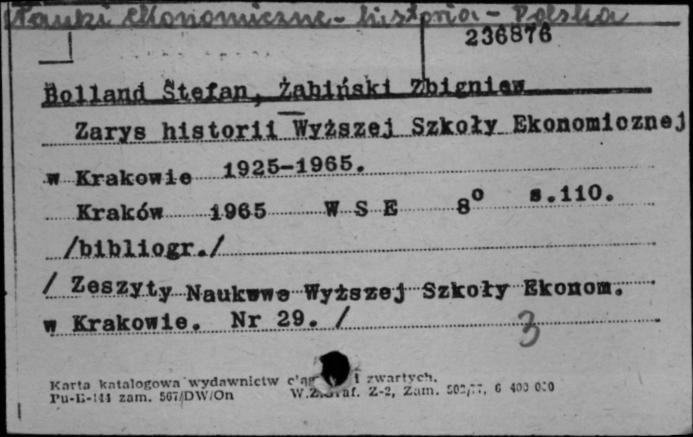 Nauki ekonomiczne - historia - Polska
236876
Bolland Stefan, Żabiński Zbigniew
Zarys historii Wyższej Szkoły Ekonomicznej
w Krakowie 1925-1965.
Kraków 1965 W S E 8° s.110.
/bibliogr./
/ Zeszyty Naukowe Wyższej Szkoły Ekonom.
w Krakowie. Nr 29. /
3
Karta katalogowa wydawnictw i zwartych.
Pu-B-144 zam. 567/DW/On Z-2, Zam. 502/77, 6 400 000